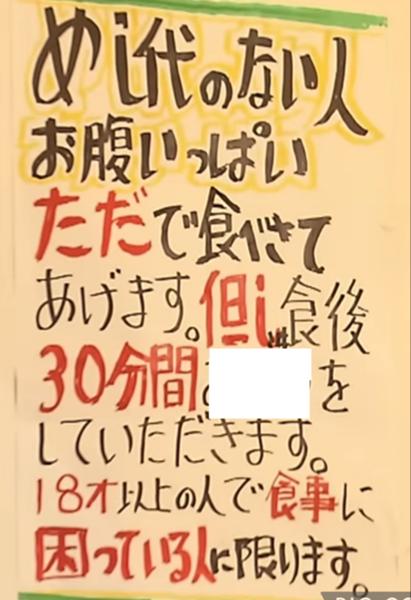 めし代のない人
お腹いっぱい
ただで食べさせて
あげます。但し食後
30分間を
していただきます。
18才以上の人で食事に
困っている人に限ります。